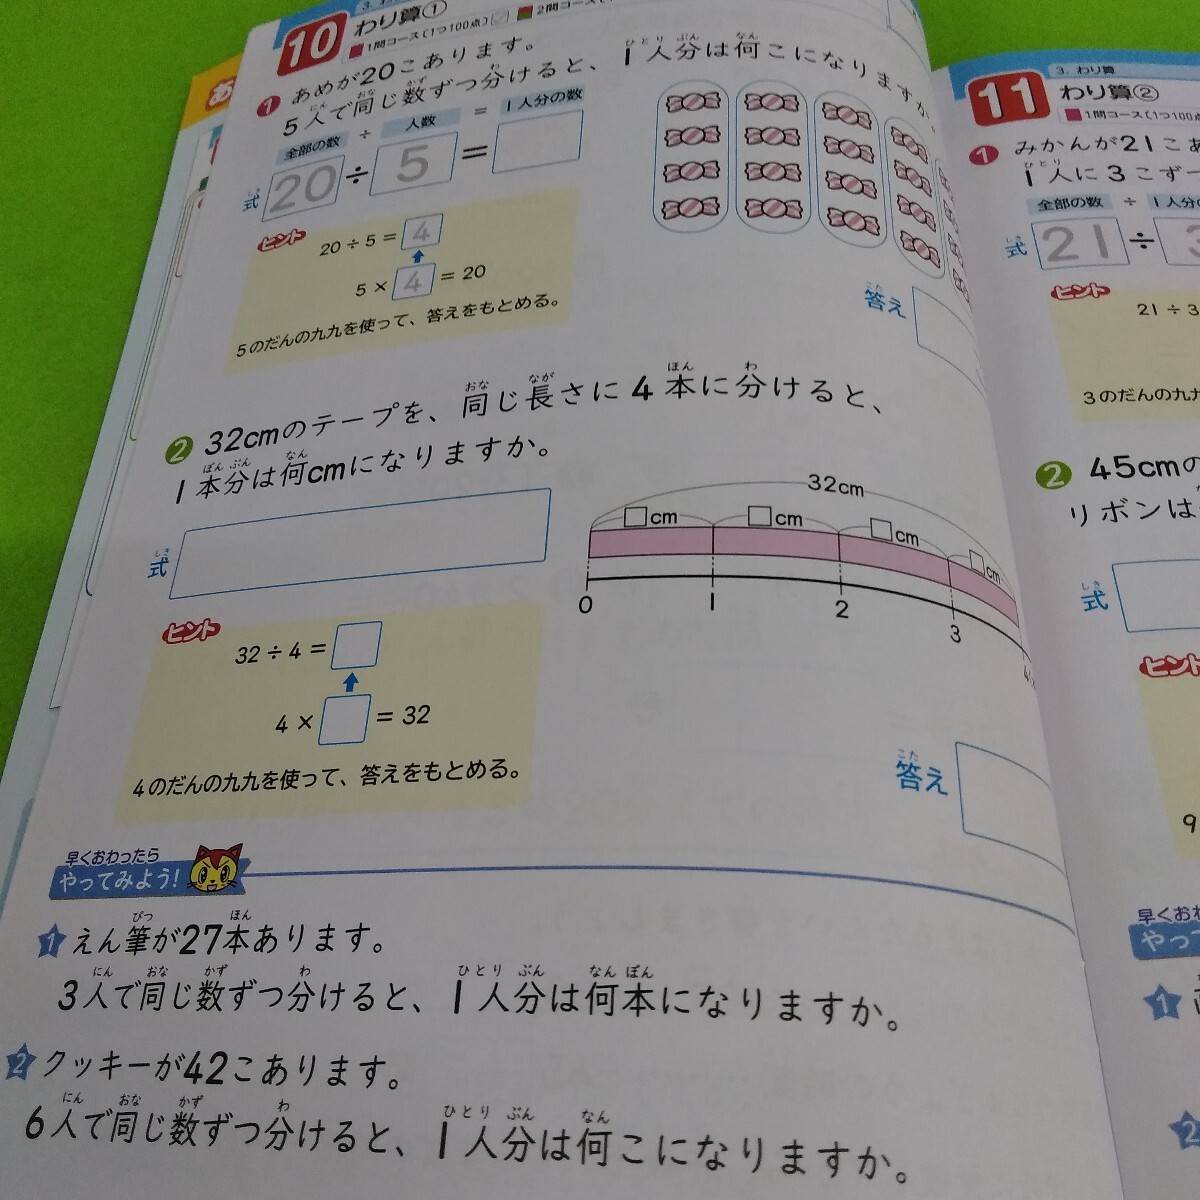 10
わり算①
1問コース(1つ100点)
2問コース
❶ あめが20こあります。
5人で同じ数ずつ分けると、1人分は何こになりますか。
全部の数 ÷ 人数 = 1人分の数
式 20 ÷ 5 =
ヒント
20 ÷ 5 = 4
5 × 4 = 20
5のだんの九九を使って、答えをもとめる。
答え
❷ 32cmのテープを、同じ長さに4本に分けると、
1本分は何cmになりますか。
式
32cm
□cm □cm □cm □cm
0 1 2 3
ヒント
32 ÷ 4 = □
4 × □ = 32
4のだんの九九を使って、答えをもとめる。
答え
早くおわったら
やってみよう!
1 えん筆が27本あります。
3人で同じ数ずつ分けると、1人分は何本になりますか。
2 クッキーが42こあります。
6人で同じ数ずつ分けると、1人分は何こになりますか。
11
3. わり算
わり算②
1問コース(1つ100点
❶ みかんが21こあ
1人に3こずつ
全部の数 ÷ 1人分の
式 21 ÷ 3
ヒント
21 ÷ 3
3のだんの九九
❷ 45cmの
リボンは
式
ヒント
9
早くおわ
やって
1
2